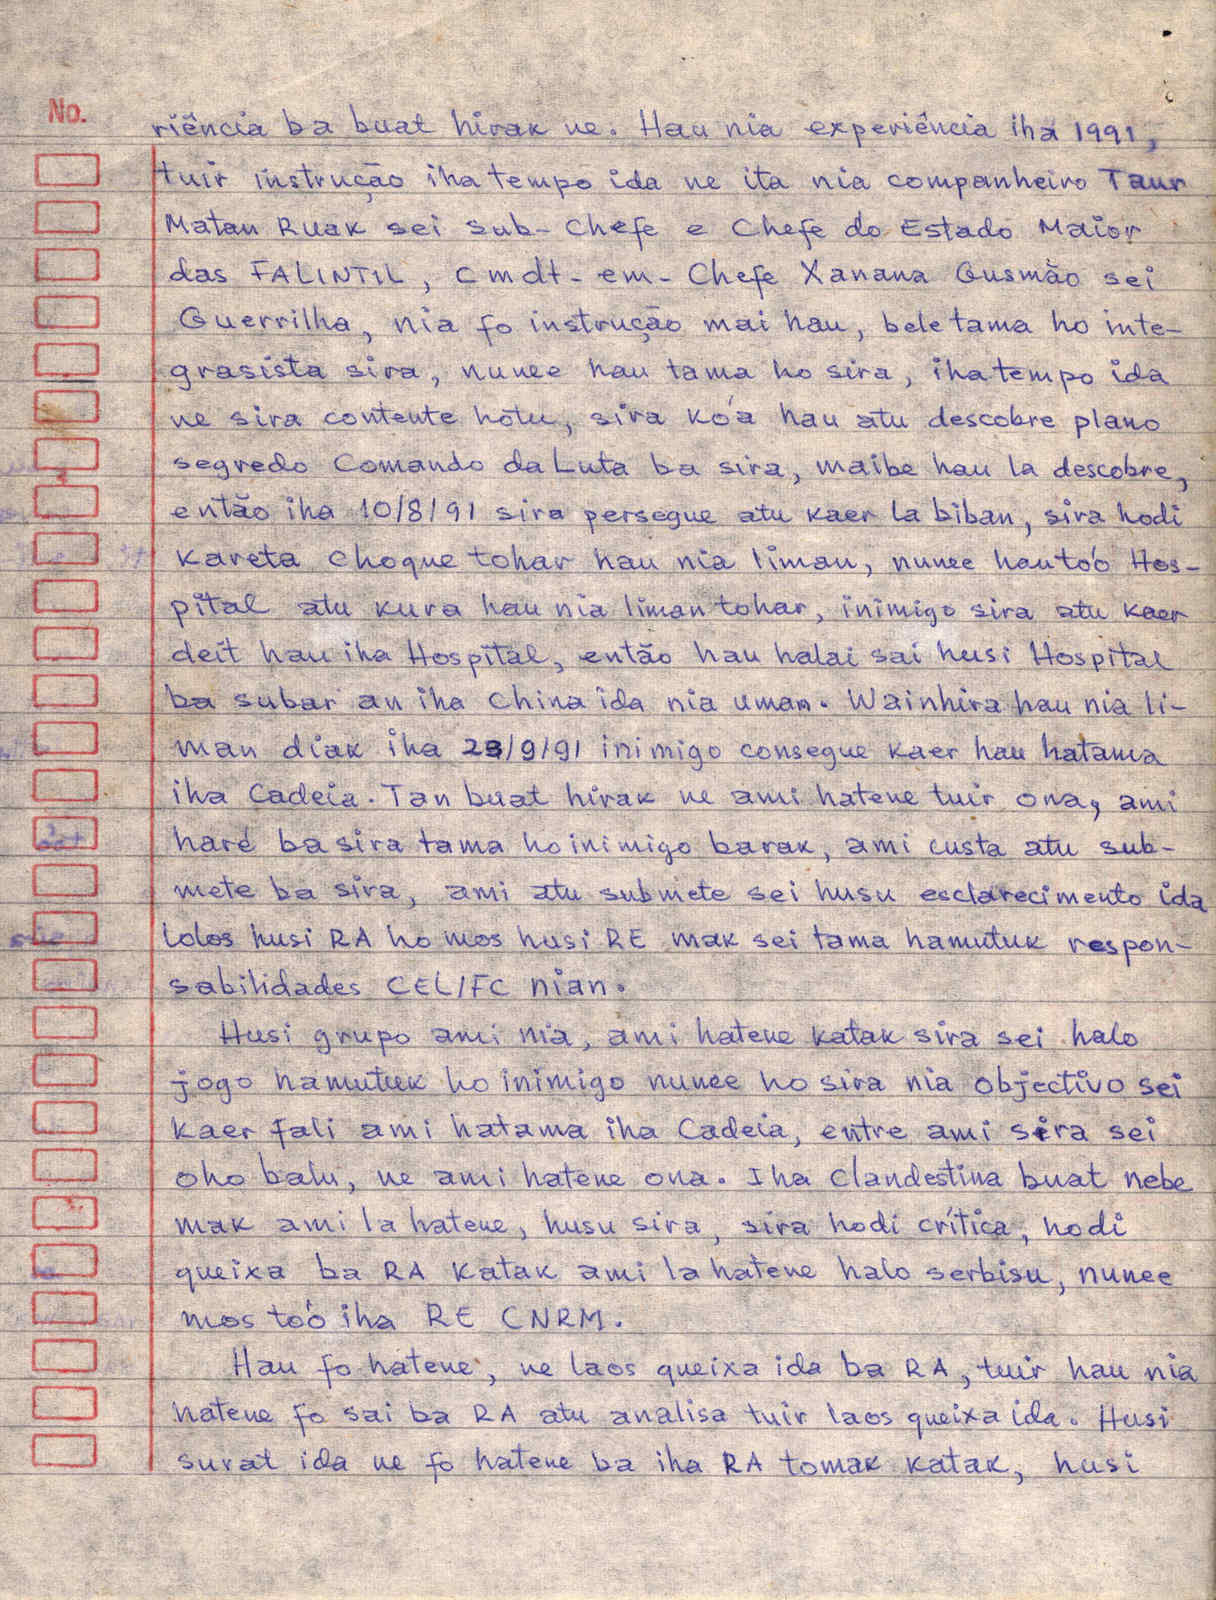 No.
riência ba buat hirak ne. Hau nia experiência iha 1991,
tuir instrução iha tempo ida ne ita nia companheiro Taur
Matan Ruak sei sub-chefe e Chefe do Estado Maior
das FALINTIL, cmdt-em-Chefe Xanana Gusmão sei
Guerrilha, nia fo instrução mai hau, bele tama ho inte-
grasista sira, nunee hau tama ho sira, iha tempo ida
ne sira contente hotu, sira ko'a hau atu descobre plano
segredo Comando da Luta ba sira, maibe hau la descobre,
então iha 10/8/91 sira persegue atu kaer la biban, sira hodi
kareta choque tohar hau nia liman, nunee hau to'o Hos-
pital atu kura hau nia liman tohar, inimigo sira atu kaer
deit hau iha Hospital, então hau halai sai husi Hospital
ba subar an iha China ida nia uman. Wainhira hau nia li-
man diak iha 23/9/91 inimigo consegue kaer hau hatama
iha Cadeia. Tan buat hirak ne ami hatene tuir ona, ami
haré ba sira tama ho inimigo barak, ami custa atu sub-
mete ba sira, ami atu submete sei husu esclarecimento ida
lolos husi RA ho mos husi RE mak sei tama hamutuk respon-
sabilidades CEL/FC nian.
Husi grupo ami nia, ami hatene katak sira sei halo
jogo hamutuk ho inimigo nunee ho sira nia objectivo sei
kaer fali ami hatama iha Cadeia, entre ami sira sei
oho balu, ne ami hatene ona. Iha clandestina buat nebe
mak ami la hatene, husu sira, sira hodi crítica, hodi
queixa ba RA katak ami la hatene halo serbisu, nunee
mos to'o iha RE CNRM.
Hau fo hatene, ne laos queixa ida ba RA, tuir hau nia
hatene fo sai ba RA atu analisa tuir laos queixa ida. Husi
surat ida ne fo hatene ba iha RA tomak katak, husi